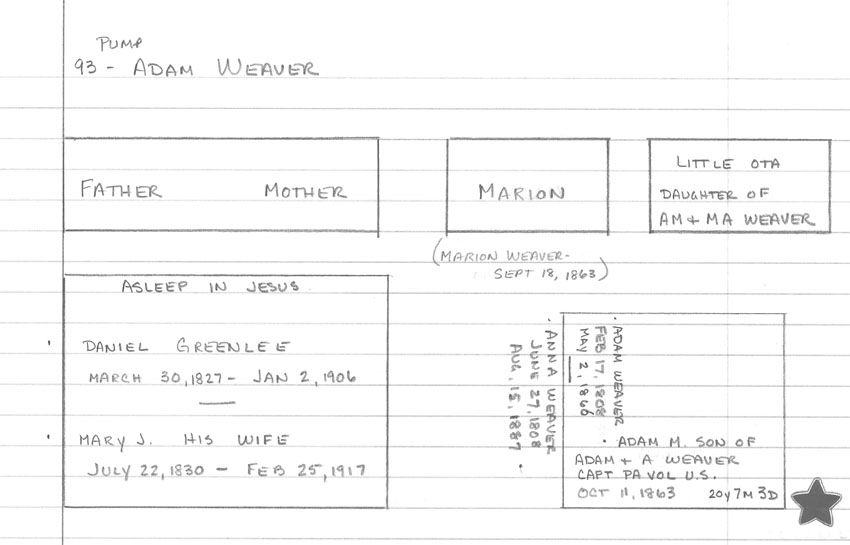 PUMP
93 - ADAM WEAVER
FATHER MOTHER
MARION
LITTLE OTA
DAUGHTER OF
AM + MA WEAVER
(MARION WEAVER-
SEPT 18, 1863)
ASLEEP IN JESUS
DANIEL GREENLEE
MARCH 30, 1827 - JAN 2, 1906
MARY J. HIS WIFE
JULY 22, 1830 - FEB 25, 1917
· ANNA WEAVER
JUNE 27, 1808
AUG, 15, 1887
· ADAM WEAVER
FEB 17, 1808
MAY 2, 1866
· ADAM M. SON OF
ADAM + A WEAVER
CAPT PA VOL U.S.
OCT 11, 1863 20Y 7M 3D